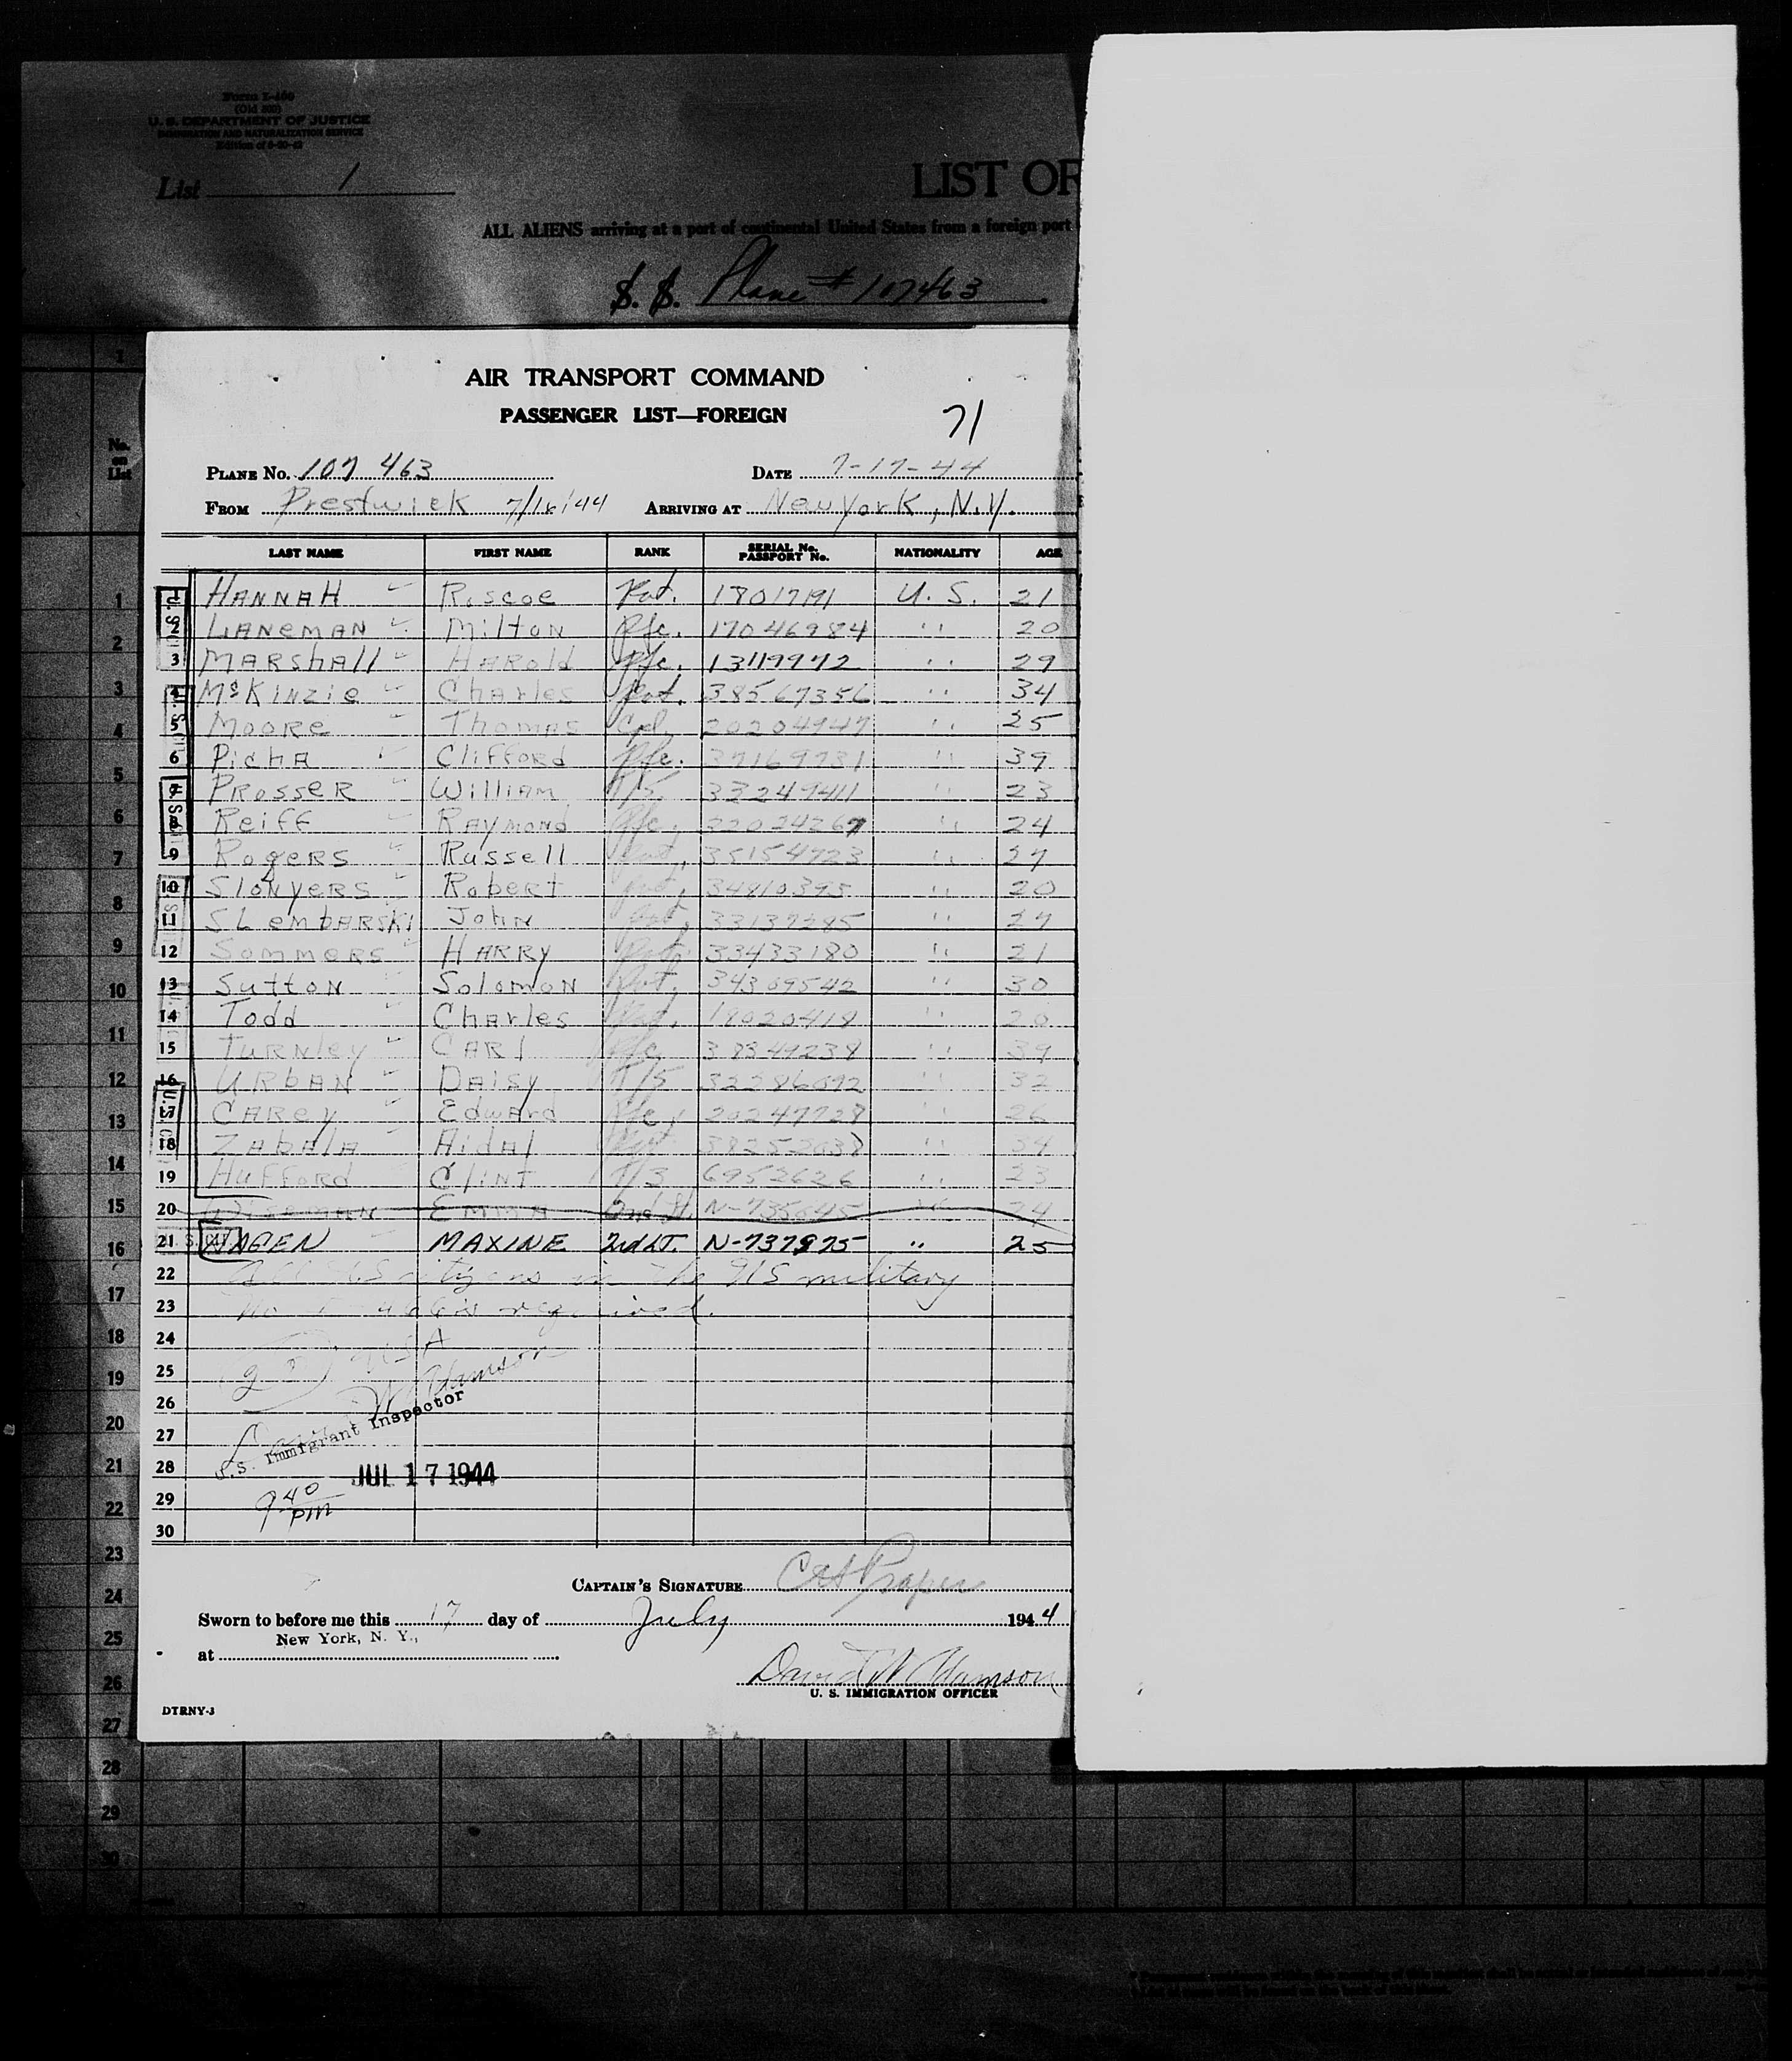 Form I-400
(Old 500)
U. S. DEPARTMENT OF JUSTICE
IMMIGRATION AND NATURALIZATION SERVICE
List 1
LIST OF
ALL ALIENS arriving at a port of continental United States from a foreign port
S. S. Plane # 107463
No. on List
AIR TRANSPORT COMMAND
PASSENGER LIST—FOREIGN
71
PLANE No. 107 463 DATE 7-17-44
FROM Prestwick ARRIVING AT New York, N.Y.
LAST NAME FIRST NAME RANK SERIAL No. PASSPORT No. NATIONALITY AGE
1 HANNAH Roscoe Pvt. 18017191 U.S. 21
2 LANEMAN Milton Pfc. 17046984 " 20
3 MARShAll HAROld Pfc. 13119972 " 29
4 McKinzie Charles Pvt. 38567356 " 34
5 MOORE Thomas Cpl. 20204947 " 25
6 PichA Clifford Pfc. 37169731 " 39
7 PROSSER William T/5 33249411 " 23
8 Reiff RAYMOND Pfc. 32024267 " 24
9 Rogers Russell Pvt. 35154723 " 27
10 Slonyers Robert Pvt. 34810395 " 20
11 SLembARSKi John Pvt. 33137285 " 27
12 Sommers HARRY Pvt. 33433180 " 21
13 Sutton Solomon Pvt. 34309542 " 30
14 Todd Charles Pvt. 18020418 " 20
15 TURNley CARl Pfc. 38349238 " 39
16 URbAN DAisy T/5 32286092 " 32
17 CARey Edward Pfc. 20247728 " 26
18 ZAbAlA Aidal Pvt. 38252038 " 34
19 Hufford Clint T/3 6952626 " 23
20 WisemAN EmmA 2nd Lt. N-735645 " 24
21 HAGEN MAXINE 2nd LT. N-737975 " 25
22 All U.S. citizens in the U S military
23 required.
24 USA
25 W Adamson
26
27 U.S. Immigrant Inspector
28 JUL 17 1944
29 9 40 pm
30
CAPTAIN'S SIGNATURE
Sworn to before me this 17 day of July 1944
New York, N. Y.,
at
David W Adamson
U. S. IMMIGRATION OFFICER
DTRNY-3